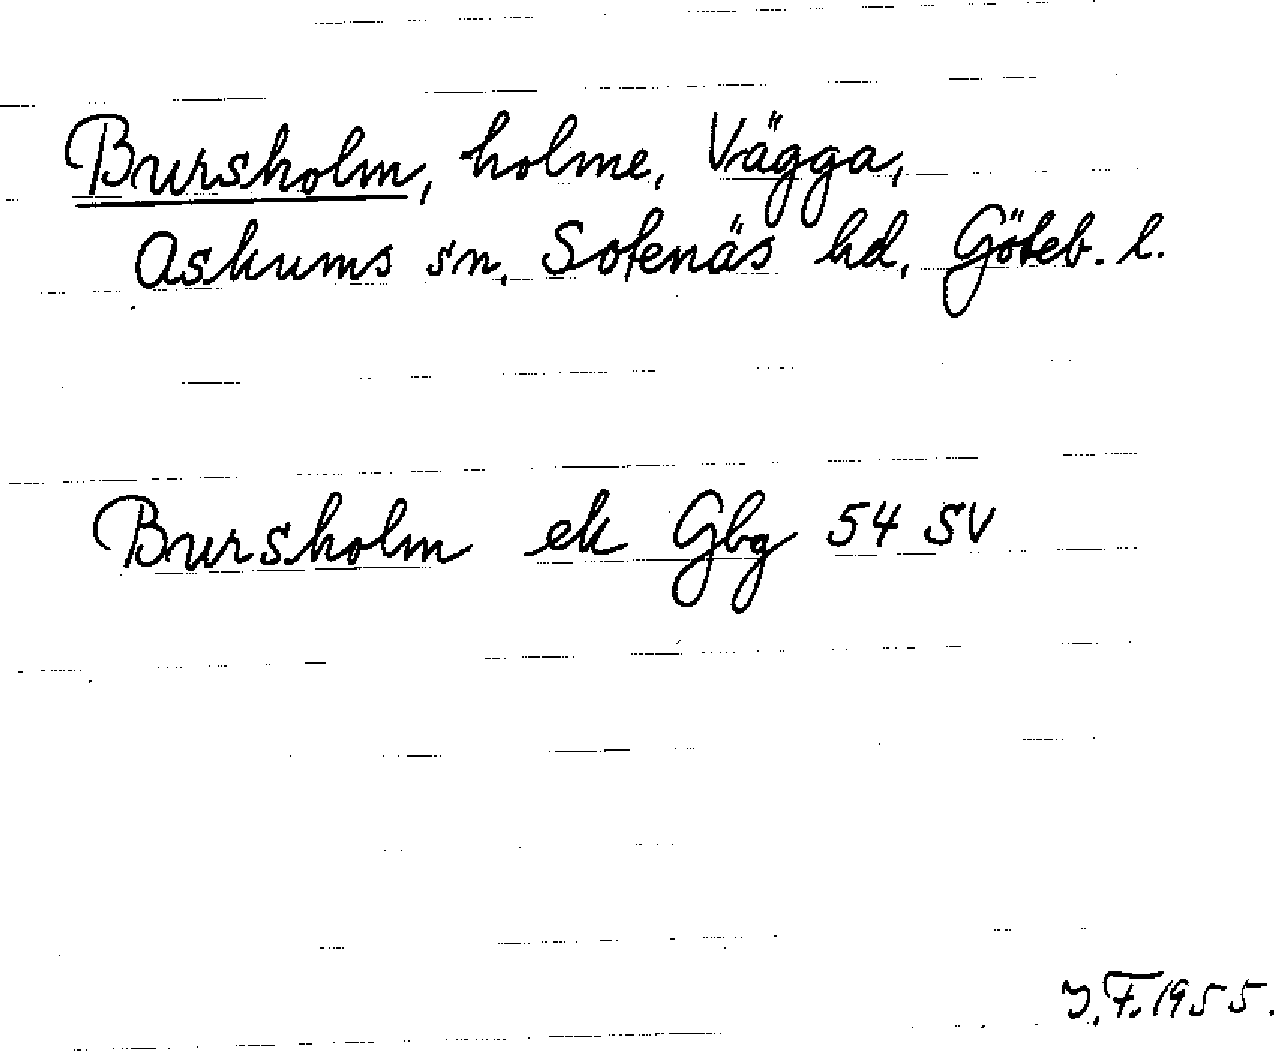 Bursholm, holme, Vägga,
Askums sn, Sotenäs hd, Göteb. l.
Bursholm ek Gbg 54 SV
J.F. 1955.